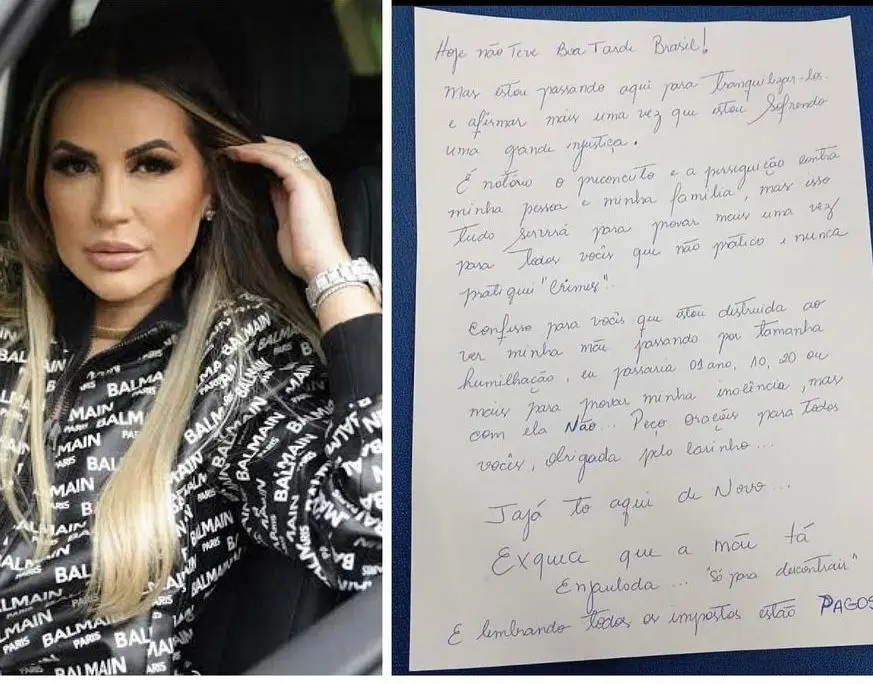 BALMAIN
PARIS
BALMAIN
PARIS
BALMAIN
PARIS
BALMAIN
PARIS
Hoje não Teve Boa Tarde Brasil!
Mas estou passando aqui para Tranquilizar-los
e afirmar mais uma vez que estou Sofrendo
uma grande injustiça.
É notório o preconceito e a perseguição contra
minha pessoa e minha família, mas isso
tudo Servirá para provar mais uma vez
para todos vocês que não pratico e nunca
pratiquei "Crimes".
Confesso para vocês que estou destruida ao
ver minha mãe passando por tamanha
humilhação, eu passaria 01 ano, 10, 20 ou
mais para provar minha inocência, mas
com ela Não... Peço orações para todos
vocês, obrigada pelo carinho...
Jajá to aqui de Novo...
Exqueca que a mãe tá
Enjaulada... "Só para descontrair"
E lembrando todos os impostos estão PAGOS